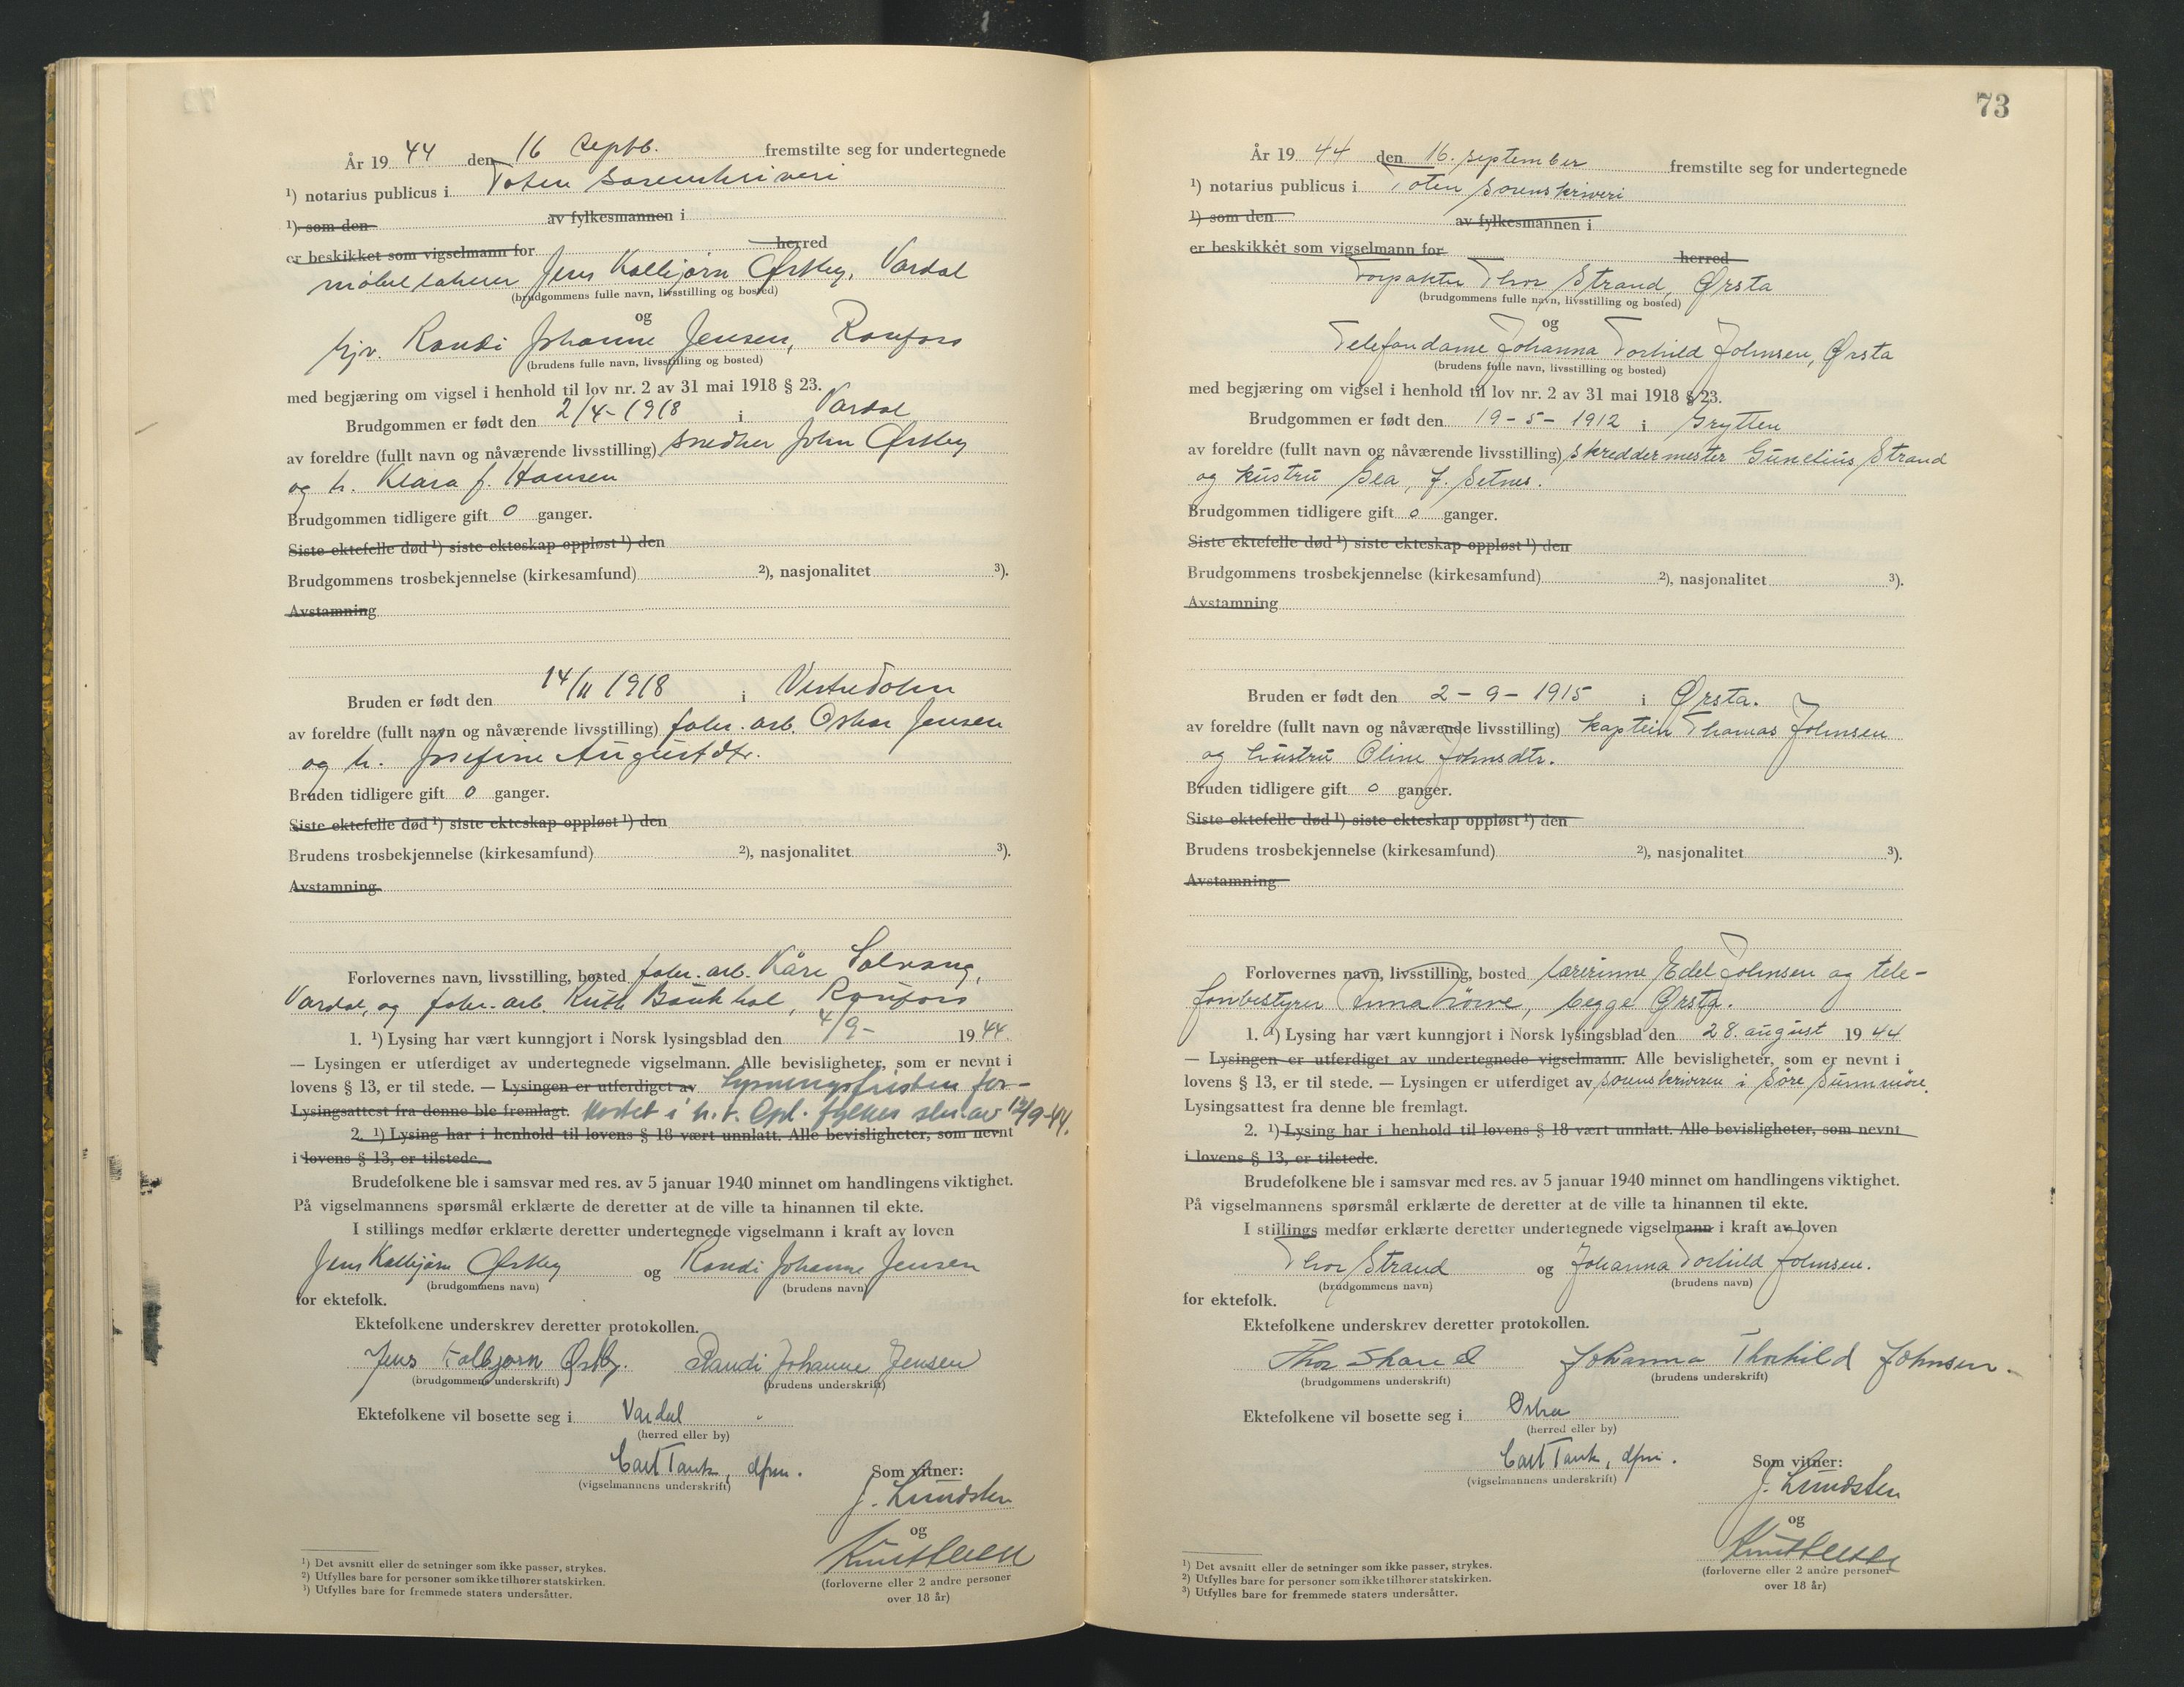 År 19 44 den 16 septb. fremstilte seg for undertegnede
¹) notarius publicus i Toten sorenskriveri
¹) som den av fylkesmannen i
er beskikket som vigselmann for herred
Jens Kolbjørn Østby, Vardal
(brudgommens fulle navn, livsstilling og bosted)
og
Randi Johanne Jensen, Raufoss
(brudens fulle navn, livsstilling og bosted)
med begjæring om vigsel i henhold til lov nr. 2 av 31 mai 1918 § 23.
Brudgommen er født den 2/4-1918 i Vardal
av foreldre (fullt navn og nåværende livsstilling) snedker John Østby
og h. Klara f. Hansen
Brudgommen tidligere gift 0 ganger.
Siste ektefelle død ¹) siste ekteskap oppløst ¹) den
Brudgommens trosbekjennelse (kirkesamfund) ²), nasjonalitet ³).
Avstamning
Bruden er født den 14/11 1918 i Vestre Toten
av foreldre (fullt navn og nåværende livsstilling) fabr. arb. Oskar Jensen
og h. Josefine Augustdtr.
Bruden tidligere gift 0 ganger.
Siste ektefelle død ¹) siste ekteskap oppløst ¹) den
Brudens trosbekjennelse (kirkesamfund) ²), nasjonalitet ³).
Avstamning
Forlovernes navn, livsstilling, bosted fabr. arb. Kåre Solvang,
Vardal, og fabr. arb. Ruth Raufoss
1. ¹) Lysing har vært kunngjort i Norsk lysingsblad den 4/9- 19 44.
— Lysingen er utferdiget av undertegnede vigselmann. Alle bevisligheter, som er nevnt i
lovens § 13, er til stede. — Lysingen er utferdiget av Lysningsfristen for-
Lysingsattest fra denne ble fremlagt. kortet i h. t. Opl. fylkes skr. av 12/9-44.
2. ¹) Lysing har i henhold til lovens § 18 vært unnlatt. Alle bevisligheter, som nevnt
i lovens § 13, er tilstede.
Brudefolkene ble i samsvar med res. av 5 januar 1940 minnet om handlingens viktighet.
På vigselmannens spørsmål erklærte de deretter at de ville ta hinannen til ekte.
I stillings medfør erklærte deretter undertegnede vigselmann i kraft av loven
Jens Kolbjørn Østby og Randi Johanne Jensen
(brudgommens navn) (brudens navn)
for ektefolk.
Ektefolkene underskrev deretter protokollen.
Jens Kolbjørn Østby. Randi Johanne Jensen
(brudgommens underskrift) (brudens underskrift)
Ektefolkene vil bosette seg i Vardal
(herred eller by)
Carl Tank, dfm. Som vitner:
(vigselmannens underskrift) J. Lundsten
og
(forloverne eller 2 andre personer
over 18 år)
¹) Det avsnitt eller de setninger som ikke passer, strykes.
²) Utfylles bare for personer som ikke tilhører statskirken.
³) Utfylles bare for fremmede staters undersåtter.
73
År 19 44 den 16. september fremstilte seg for undertegnede
¹) notarius publicus i Toten sorenskriveri
¹) som den av fylkesmannen i
er beskikket som vigselmann for herred
Forpakter Thor Strand, Ørsta
(brudgommens fulle navn, livsstilling og bosted)
og
Telefondame Johanna Torhild Johnsen, Ørsta
(brudens fulle navn, livsstilling og bosted)
med begjæring om vigsel i henhold til lov nr. 2 av 31 mai 1918 § 23.
Brudgommen er født den 19-5-1912 i Grytten
av foreldre (fullt navn og nåværende livsstilling) skreddermester Gunelius Strand
og hustru Gea, f. Setnes.
Brudgommen tidligere gift 0 ganger.
Siste ektefelle død ¹) siste ekteskap oppløst ¹) den
Brudgommens trosbekjennelse (kirkesamfund) ²), nasjonalitet ³).
Avstamning
Bruden er født den 2-9-1915 i Ørsta.
av foreldre (fullt navn og nåværende livsstilling) kaptein Thomas Johnsen
og hustru Oline Johnsdtr.
Bruden tidligere gift 0 ganger.
Siste ektefelle død ¹) siste ekteskap oppløst ¹) den
Brudens trosbekjennelse (kirkesamfund) ²), nasjonalitet ³).
Avstamning
Forlovernes navn, livsstilling, bosted lærerinne Edel Johnsen og tele-
fonbestyrer Anna begge Ørsta.
1. ¹) Lysing har vært kunngjort i Norsk lysingsblad den 28. august 19 44
— Lysingen er utferdiget av undertegnede vigselmann. Alle bevisligheter, som er nevnt i
lovens § 13, er til stede. — Lysingen er utferdiget av sorenskriveren i Søre Sunnmøre.
Lysingsattest fra denne ble fremlagt.
2. ¹) Lysing har i henhold til lovens § 18 vært unnlatt. Alle bevisligheter, som nevnt
i lovens § 13, er tilstede.
Brudefolkene ble i samsvar med res. av 5 januar 1940 minnet om handlingens viktighet.
På vigselmannens spørsmål erklærte de deretter at de ville ta hinannen til ekte.
I stillings medfør erklærte deretter undertegnede vigselmann i kraft av loven
Thor Strand og Johanna Torhild Johnsen.
(brudgommens navn) (brudens navn)
for ektefolk.
Ektefolkene underskrev deretter protokollen.
Thor Strand Johanna Thorhild Johnsen.
(brudgommens underskrift) (brudens underskrift)
Ektefolkene vil bosette seg i
(herred eller by)
Carl Tank, dfm. Som vitner:
(vigselmannens underskrift) J. Lundsten
og
(forloverne eller 2 andre personer
over 18 år)
¹) Det avsnitt eller de setninger som ikke passer, strykes.
²) Utfylles bare for personer som ikke tilhører statskirken.
³) Utfylles bare for fremmede staters undersåtter.